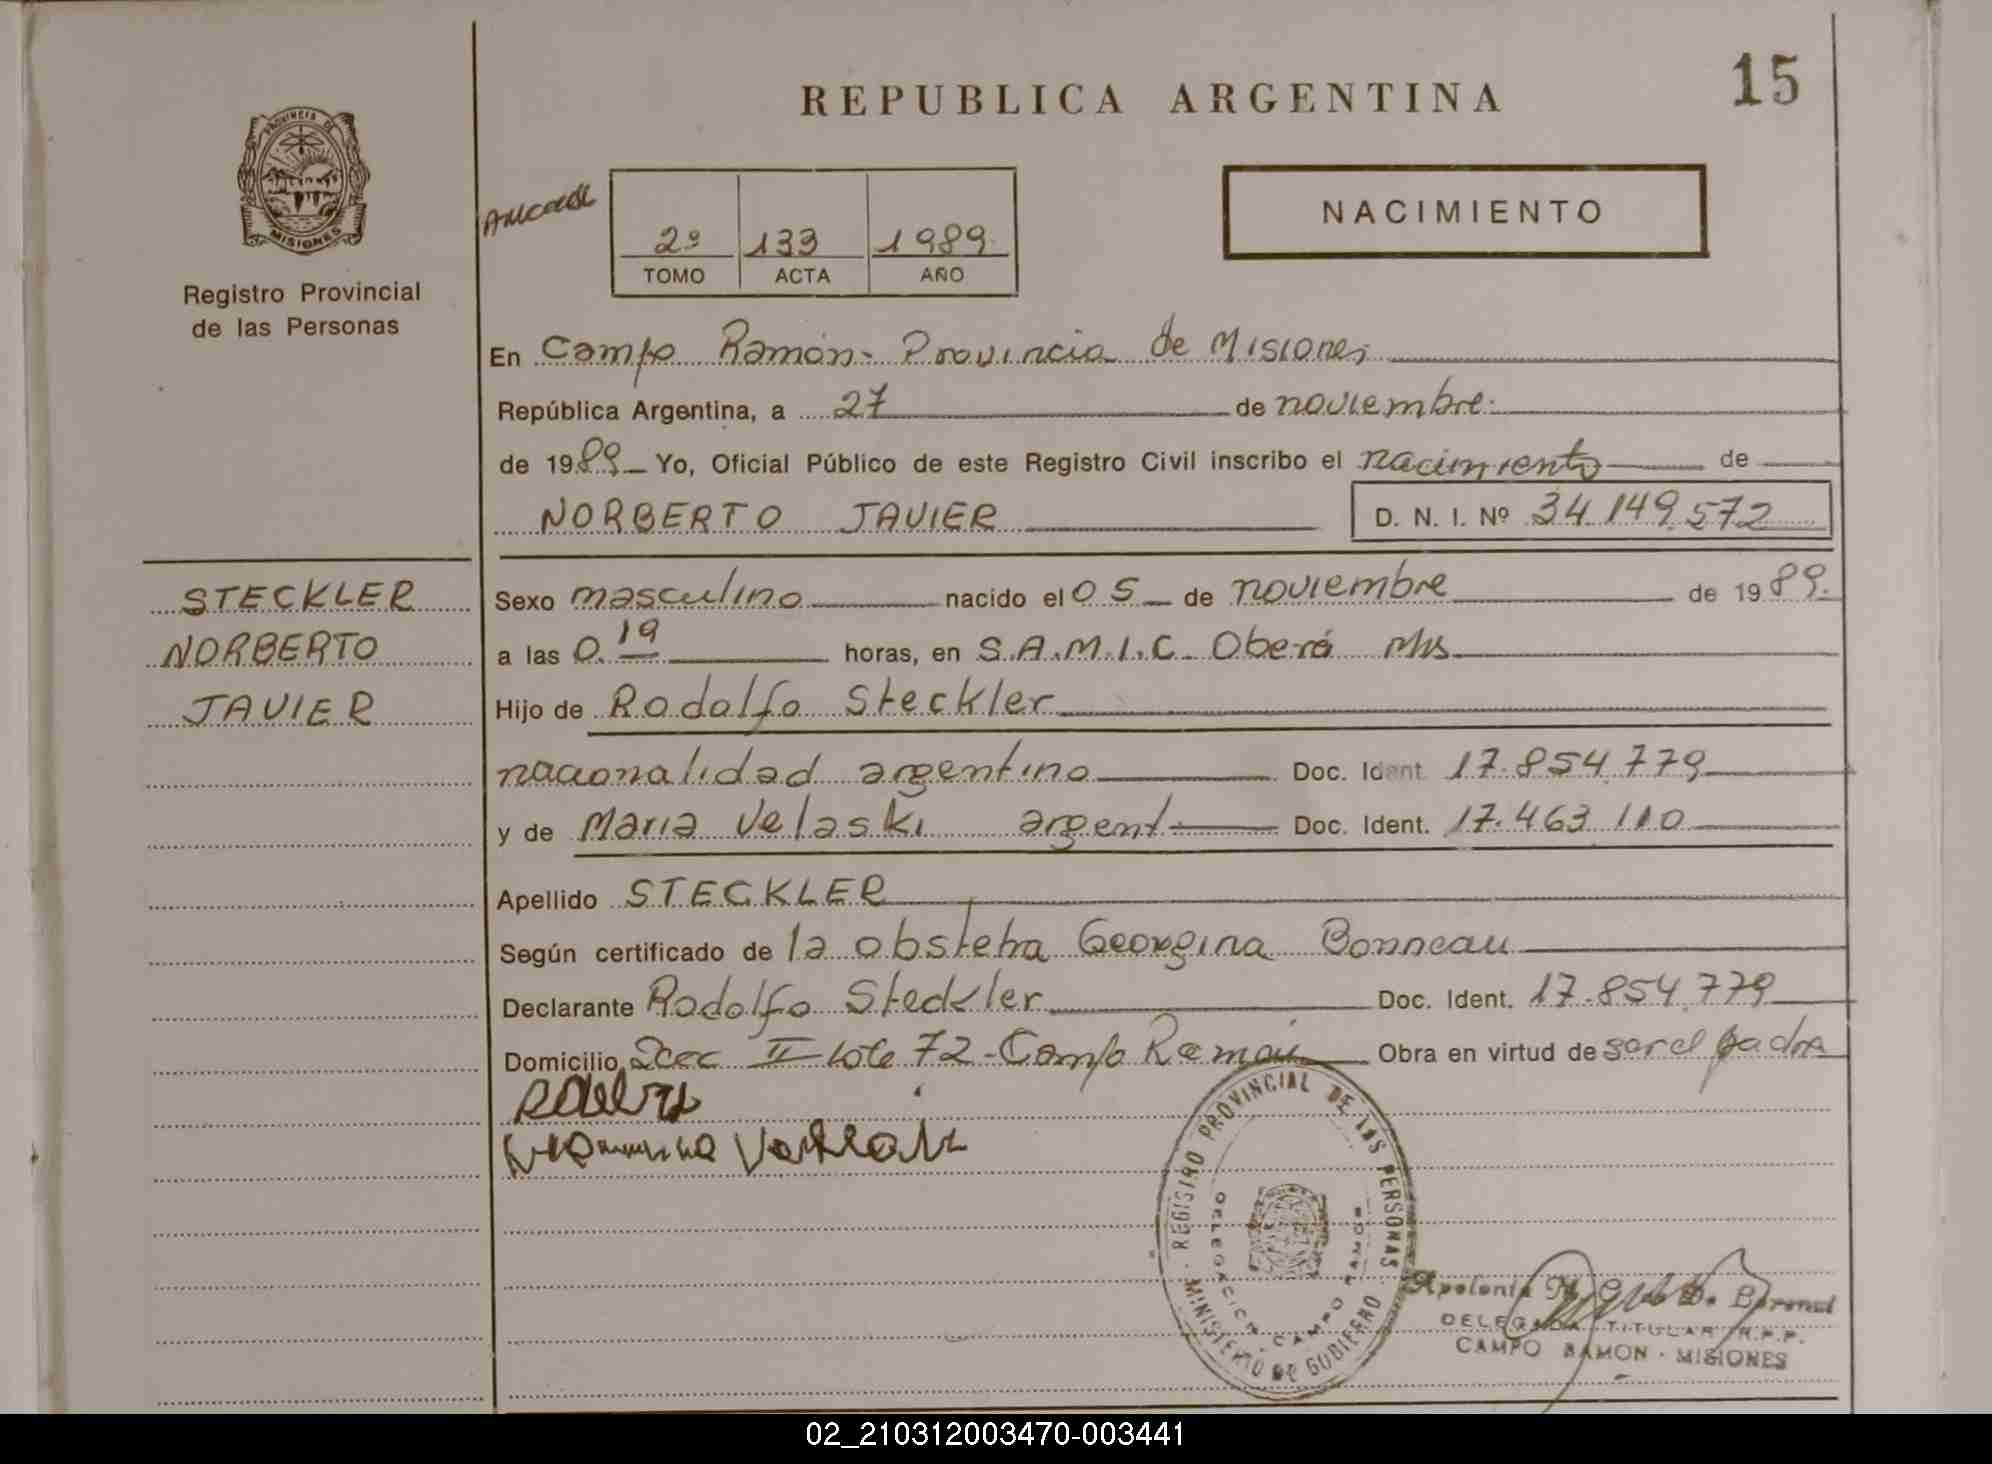 15
REPUBLICA ARGENTINA
PROVINCIA DE
MISIONES
Registro Provincial
de las Personas
2º 133 1989
TOMO ACTA AÑO
NACIMIENTO
En Campo Ramón - Provincia de Misiones
República Argentina, a 27 de noviembre
de 1989 Yo, Oficial Público de este Registro Civil inscribo el nacimiento de
NORBERTO JAVIER D. N. I. Nº 34.149.572
STECKLER
NORBERTO
JAVIER
Sexo masculino nacido el 05 de noviembre de 1989.
a las 0.19 horas, en S.A.M.I.C. Oberá Mns
Hijo de Rodolfo Steckler
nacionalidad argentino Doc. Ident. 17.854.779
y de Maria Velaski argent Doc. Ident. 17.463.110
Apellido STECKLER
Según certificado de la obstetra Georgina Bonneau
Declarante Rodolfo Steckler Doc. Ident. 17.854.779
Domicilio Secc II Lote 72 - Campo Ramón Obra en virtud de ser el padre
REGISTRO PROVINCIAL DE LAS PERSONAS
DELEGACION CAMPO RAMON
MINISTERIO DE GOBIERNO
DELEGADA TITULAR R.P.P.
CAMPO RAMON - MISIONES
02_210312003470-003441